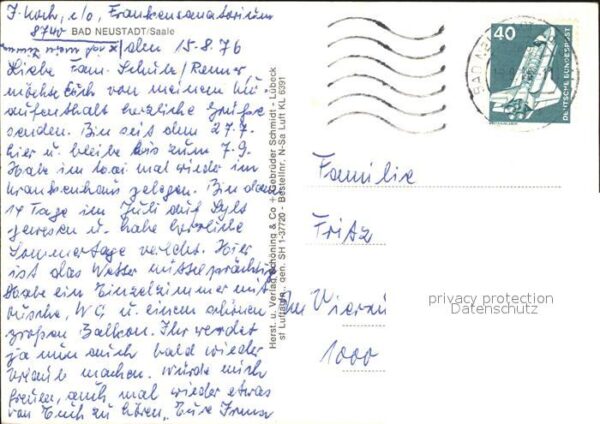 J. Koch, c/o, Frankensanatorium
8740 BAD NEUSTADT/Saale
den 15.8.76
Liebe Fam. Schulz / Renner,
möchte Euch von meinem Kur
aufenthalt herzliche Grüße
senden. Bin seit dem 27.7.
hier u. bleibe bis zum 7.9.
Habe im Mai mal wieder im
Krankenhaus gelegen. Bin dann
14 Tage im Juli auf Sylt
gewesen u. habe herrliche
Sommertage verlebt. Hier
ist das Wetter mittelprächtig
Habe ein Einzelzimmer mit
Dusche, WC u. einem schönen
großen Balkon. Ihr werdet
ja nun auch bald wieder
Urlaub machen. Würde mich
freuen, auch mal wieder etwas
von Euch zu hören, Eure Irma
Herst. u. Verlag Schöning & Co + Gebrüder Schmidt - Lübeck
gen. SH 1-37720 - Bestellnr. N-Sa Luft KL 6391
40
DEUTSCHE BUNDESPOST
Familie
Fritz
Im
1000
privacy protection
Datenschutz